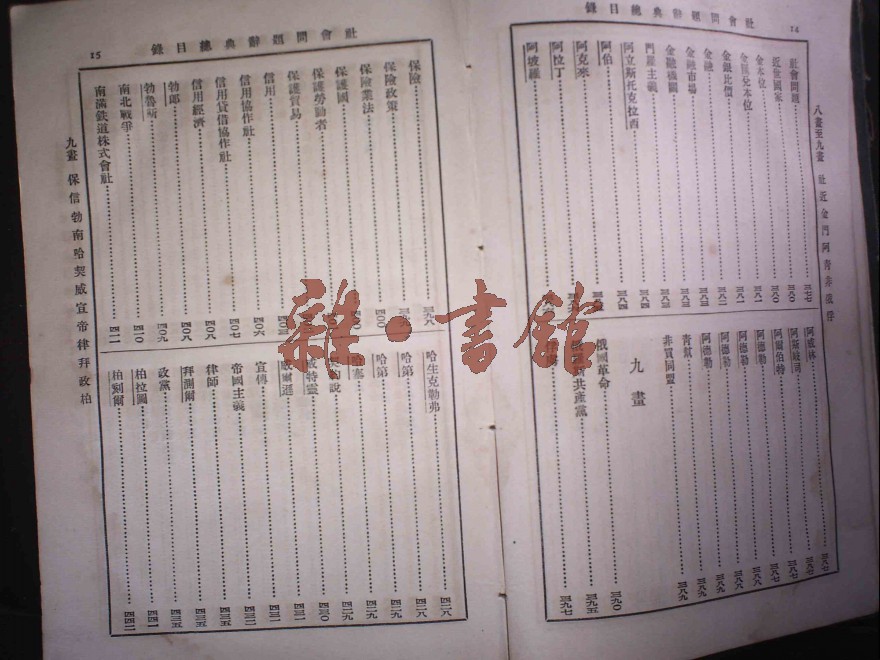 社會問題辭典總目錄
14
八畫至九畫 社近金門阿青非俄俘
社會問題 三七七
近世國家 三八〇
金本位 三八〇
金匯兌本位 三八一
金銀比價 三八一
金融 三八二
金融市場
金融機關
門羅主義 三八四
阿立斯托克拉西 三八四
阿伯
阿克來
阿拉丁
阿坡羅
阿威林 三八七
阿斯歧司 三八七
阿爾伯特 三八七
阿德勒 三八八
阿德勒 三八八
阿德勒
青幫 三八九
非買同盟 三八九
九畫
俄國革命 三九〇
共產黨 三九五
三九七
社會問題辭典總目錄
15
保險 三九八
保險政策
保險業法 四〇〇
保護國
保護勞動者
保護貿易
信用 四〇六
信用協作社 四〇七
信用貸借協作社 四〇八
信用經濟 四〇八
勃郎 四〇八
勃魯斯 四〇九
南北戰爭 四一〇
南滿鉄道株式會社 四一一
哈生克勒弗 四二八
哈第 四二八
哈第 四二九
哈塞 四二九
約說 四二九
威特靈 四三〇
威爾遜 四三一
宣傳 四三一
帝國主義 四三二
律師 四三五
拜測爾 四三五
政黨 四三五
柏拉圖 四四一
柏剡爾 四四二
九畫 保信勃南哈契威宣帝律拜政柏
雜·書館